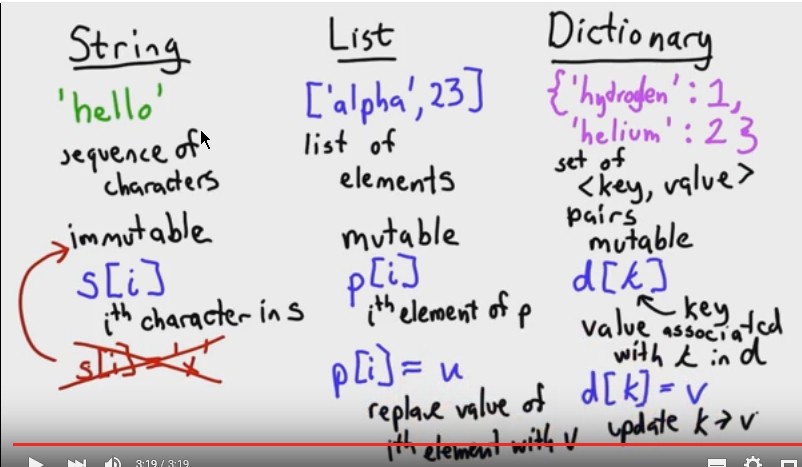 String
'hello'
sequence of
characters
immutable
s[i]
ith character in s
s[i] = 'x'
List
['alpha', 23]
list of
elements
mutable
p[i]
ith element of p
p[i] = u
replace value of
ith element with v
Dictionary
{'hydrogen' : 1,
'helium' : 2 }
set of
<key, value>
pairs
mutable
d[k]
key
value associated
with k in d
d[k] = v
update k → v
3:19 / 3:19